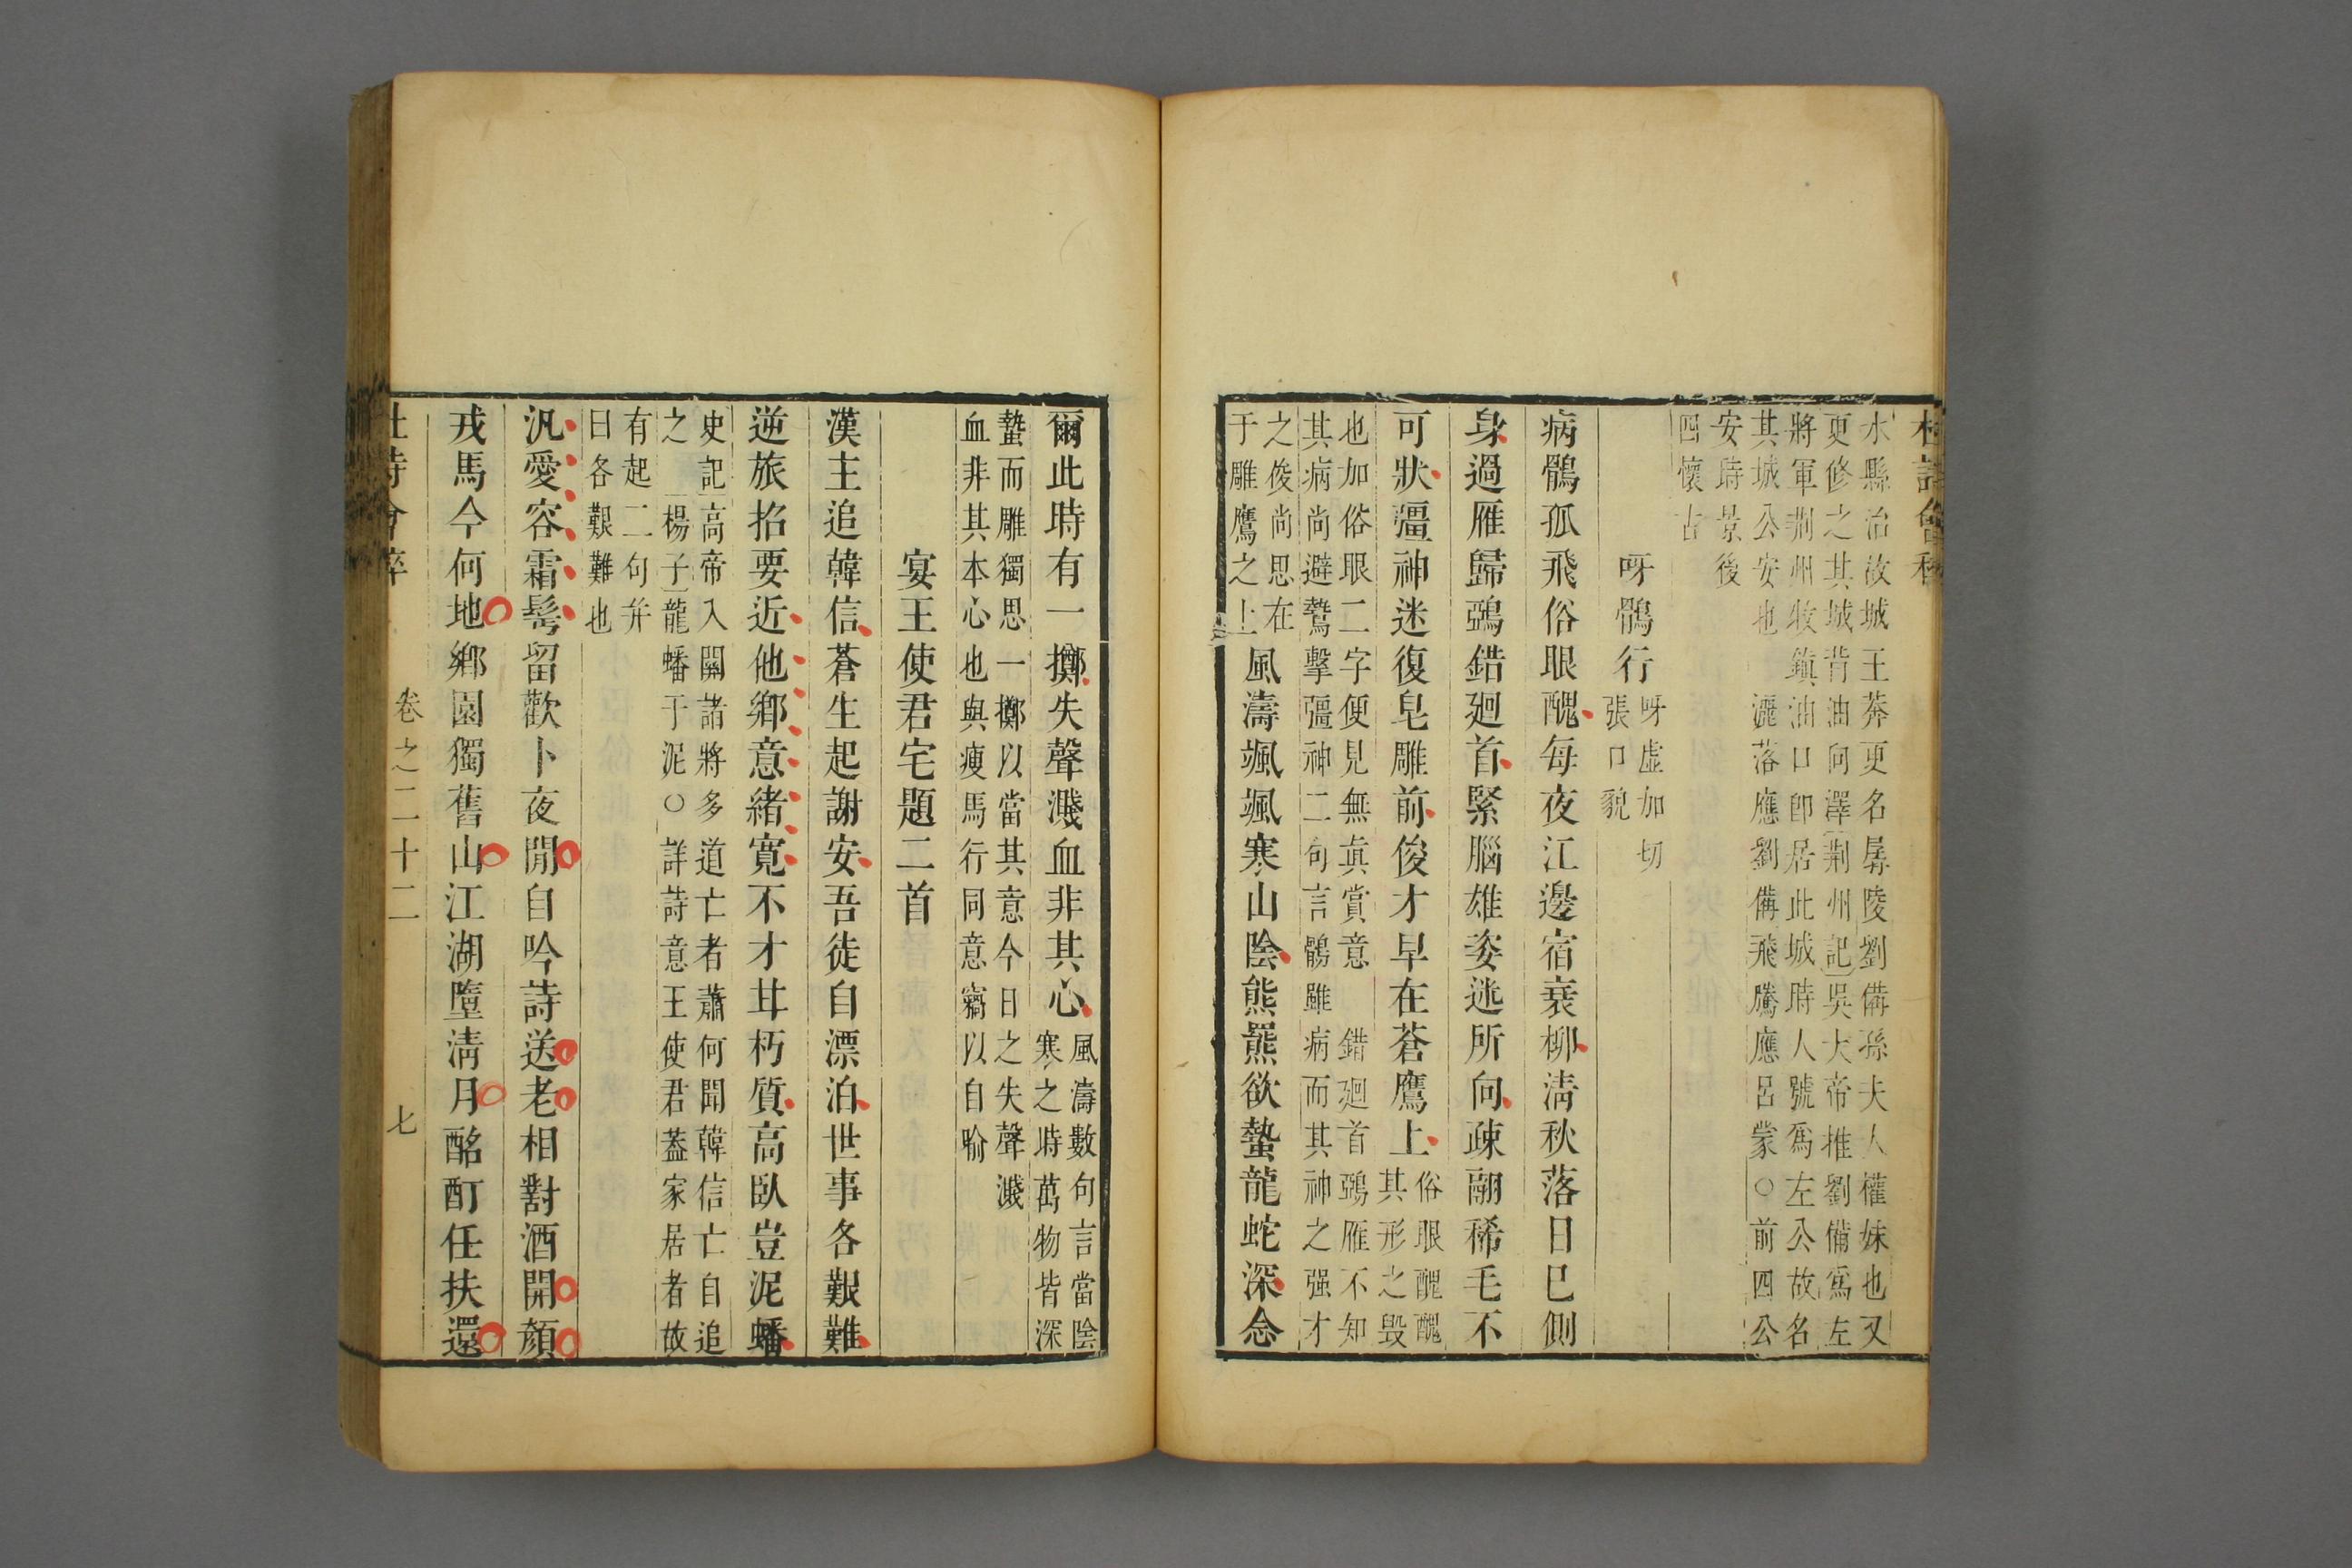 杜詩會稡
水縣治故城王莽更名孱陵劉備孫夫人權妹也又
更修之其城背油向澤荆州記吳大帝推劉備爲左
將軍荆州牧鎮油口即居此城時人號爲左公故名
其城公安也　灑落應劉備飛騰應呂蒙○前四公
安時景後
四懷古
呀鶻行
呀虛加切
張口貌
病鶻孤飛俗眼醜每夜江邊宿衰柳淸秋落日巳側
身過雁歸鴉錯廻首緊腦雄姿迷所向疎翮稀毛不
可狀彊神迷復皂雕前俊才早在蒼鷹上
俗眼醜醜
其形之毁
也加俗眼二字便見無眞賞意　錯廻首鴉雁不知
其病尚避鷙擊彊神二句言鶻雖病而其神之强才
之俊尚思在
于雕鷹之上
風濤颯颯寒山陰熊羆欲蟄龍蛇深念
爾此時有一擲失聲濺血非其心
風濤數句言當陰
寒之時萬物皆深
蟄而雕獨思一擲以當其意今日之失聲濺
血非其本心也與瘦馬行同意竊以自喻
宴王使君宅題二首
漢主追韓信蒼生起謝安吾徒自漂泊世事各艱難
逆旅招要近他鄉意緒寬不才甘朽質高臥豈泥蟠
史記高帝入關諸將多道亡者蕭何聞韓信亡自追
之　楊子龍蟠于泥○詳詩意王使君葢家居者故
有起二句幷
曰各艱難也
汎愛容霜髩留歡卜夜閒自吟詩送老相對酒開顏
戎馬今何地鄉園獨舊山江湖墮淸月酩酊任扶還
杜詩會稡
卷之二十二
七